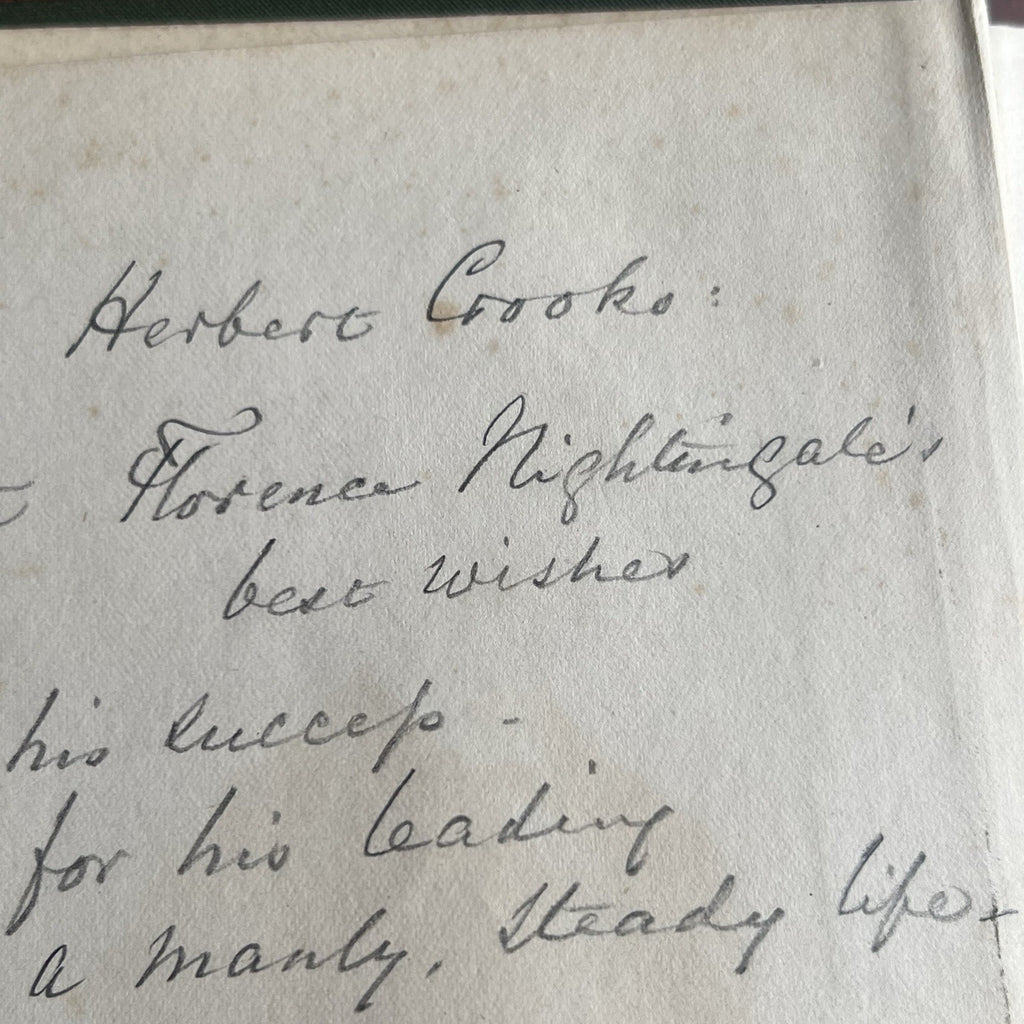 Herbert Crooks:
Florence Nightingale's
best wishes
his success -
for his leading
a manly, steady life -